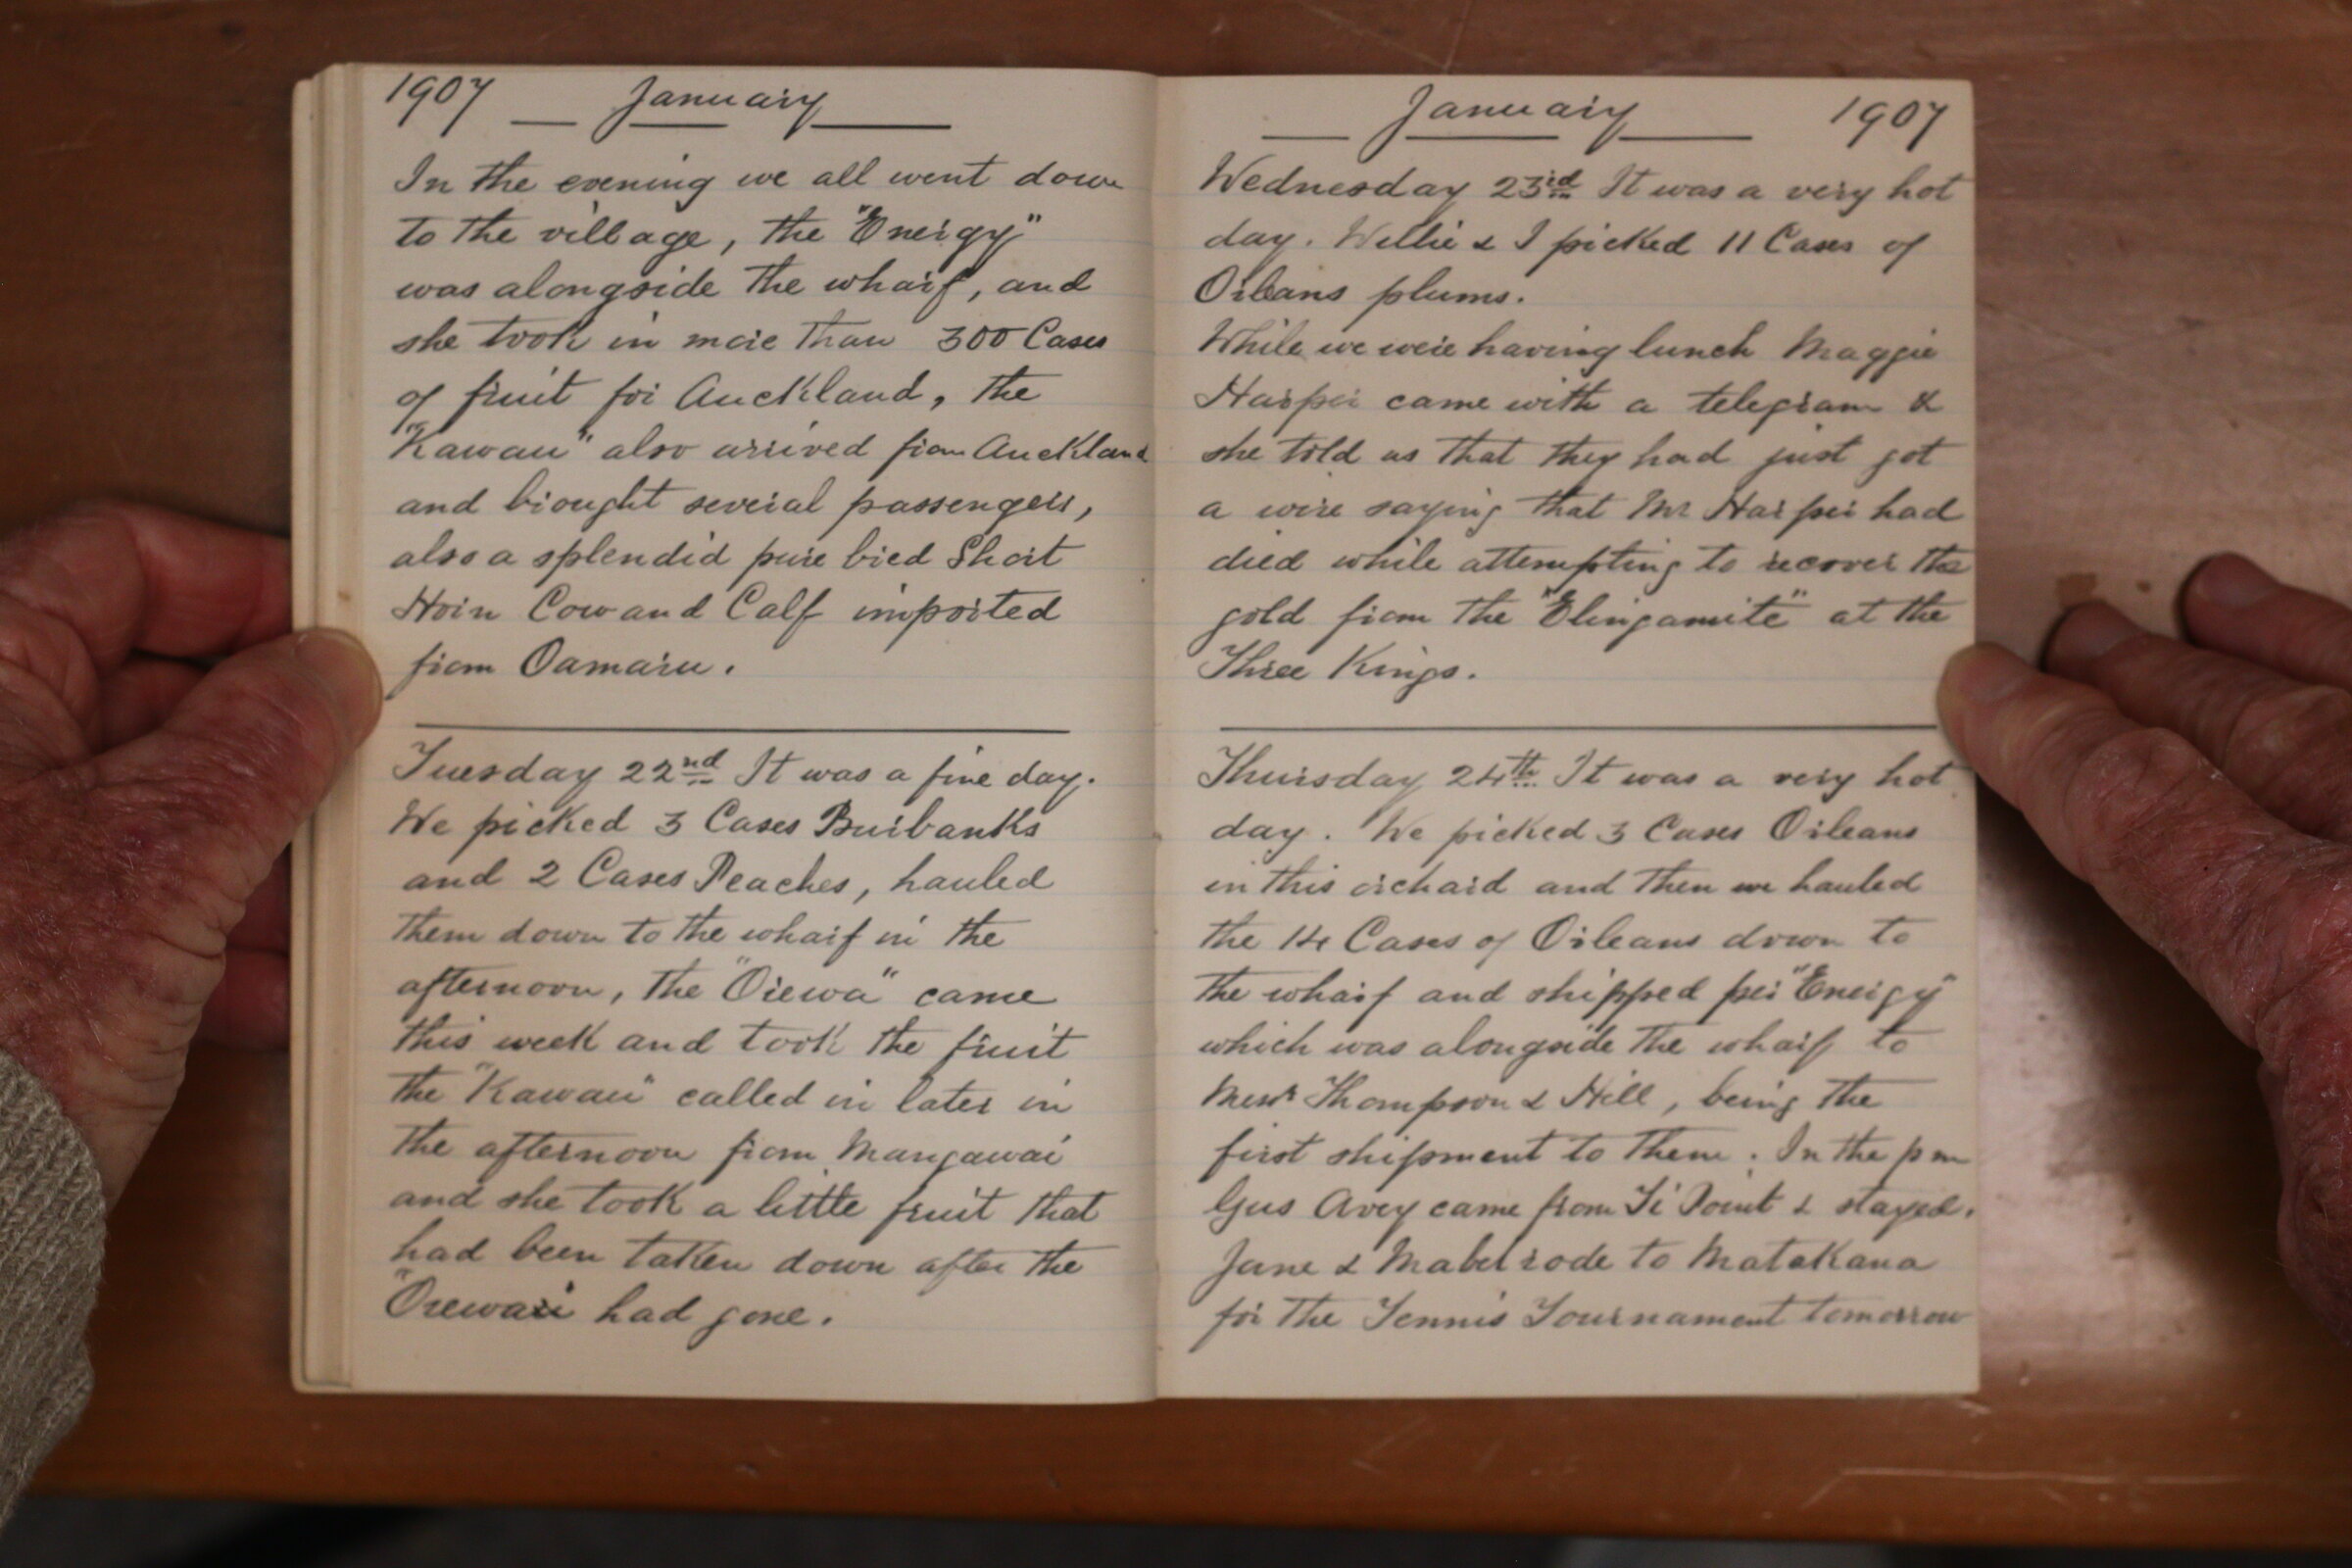 1907 January
In the evening we all went down
to the village, the "Energy"
was alongside the wharf, and
she took in more than 300 Cases
of fruit for Auckland, the
"Kawau" also arrived from Auckland
and brought several passengers,
also a splendid pure bred Short
Horn Cow and Calf imported
from Oamaru.
Tuesday 22nd It was a fine day.
We picked 3 Cases Burbanks
and 2 Cases Peaches, hauled
them down to the wharf in the
afternoon, the "Orewa" came
this week and took the fruit
the "Kawau" called in later in
the afternoon from Mangawai
and she took a little fruit that
had been taken down after the
"Orewa" had gone.
January 1907
Wednesday 23rd It was a very hot
day. Willie & I picked 11 Cases of
Orleans plums.
While we were having lunch Maggie
Harper came with a telegram &
she told us that they had just got
a wire saying that Mr Harper had
died while attempting to recover the
gold from the "Elingamite" at the
Three Kings.
Thursday 24th It was a very hot
day. We picked 3 Cases Orleans
in this orchard and then we hauled
the 14 Cases of Orleans down to
the wharf and shipped per "Energy"
which was alongside the wharf to
Messrs Thompson & Hill, being the
first shipment to them. In the pm
Gus Avey came from Ti Point & stayed.
Jane & Mabel rode to Matakana
for the Tennis Tournament tomorrow